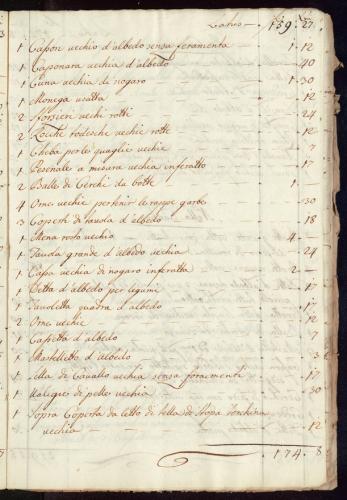 Latus — 159. 27
1 Capon vechio d'albedo sensa feramenta — 1 - 12
1 Capsonara vechia d'albedo — 40
1 Cuna vechia di nogaro — 1 - 30
1 Monega usatta — 12
2 Sforsieri vechi rotti — 24
2 Rocche todesche vechie rotte — 12
1 Cheba per le quaglie vechie — 7
1 Pesenale a misura vechia inferatto — 17
2 Balle di Cerchi da botte — 1 —
4 Orne vechie per tenir le raspe garbe — 30
3 Coperchi di tauola d'albedo — 18
1 Mena rosto vechio — 4 —
1 Tauola grande d'albedo vechia — 24
1 Cassa vechia di nogaro inferatta — 2 —
1 d'albedo per legumi — 17
1 Tauoletta quadra d'albedo — 17
2 Orne vechie — 12
1 Cassetta d'albedo — 7
1 Mastelletto d'albedo — 3
1 Sella di Cauallo vechia sensa foramenti — 17
1 Ualigie di pelle vechia — 30
1 Sopra Coperta da letto di tella di Stopa Torchina
vechia — 12
174. 8